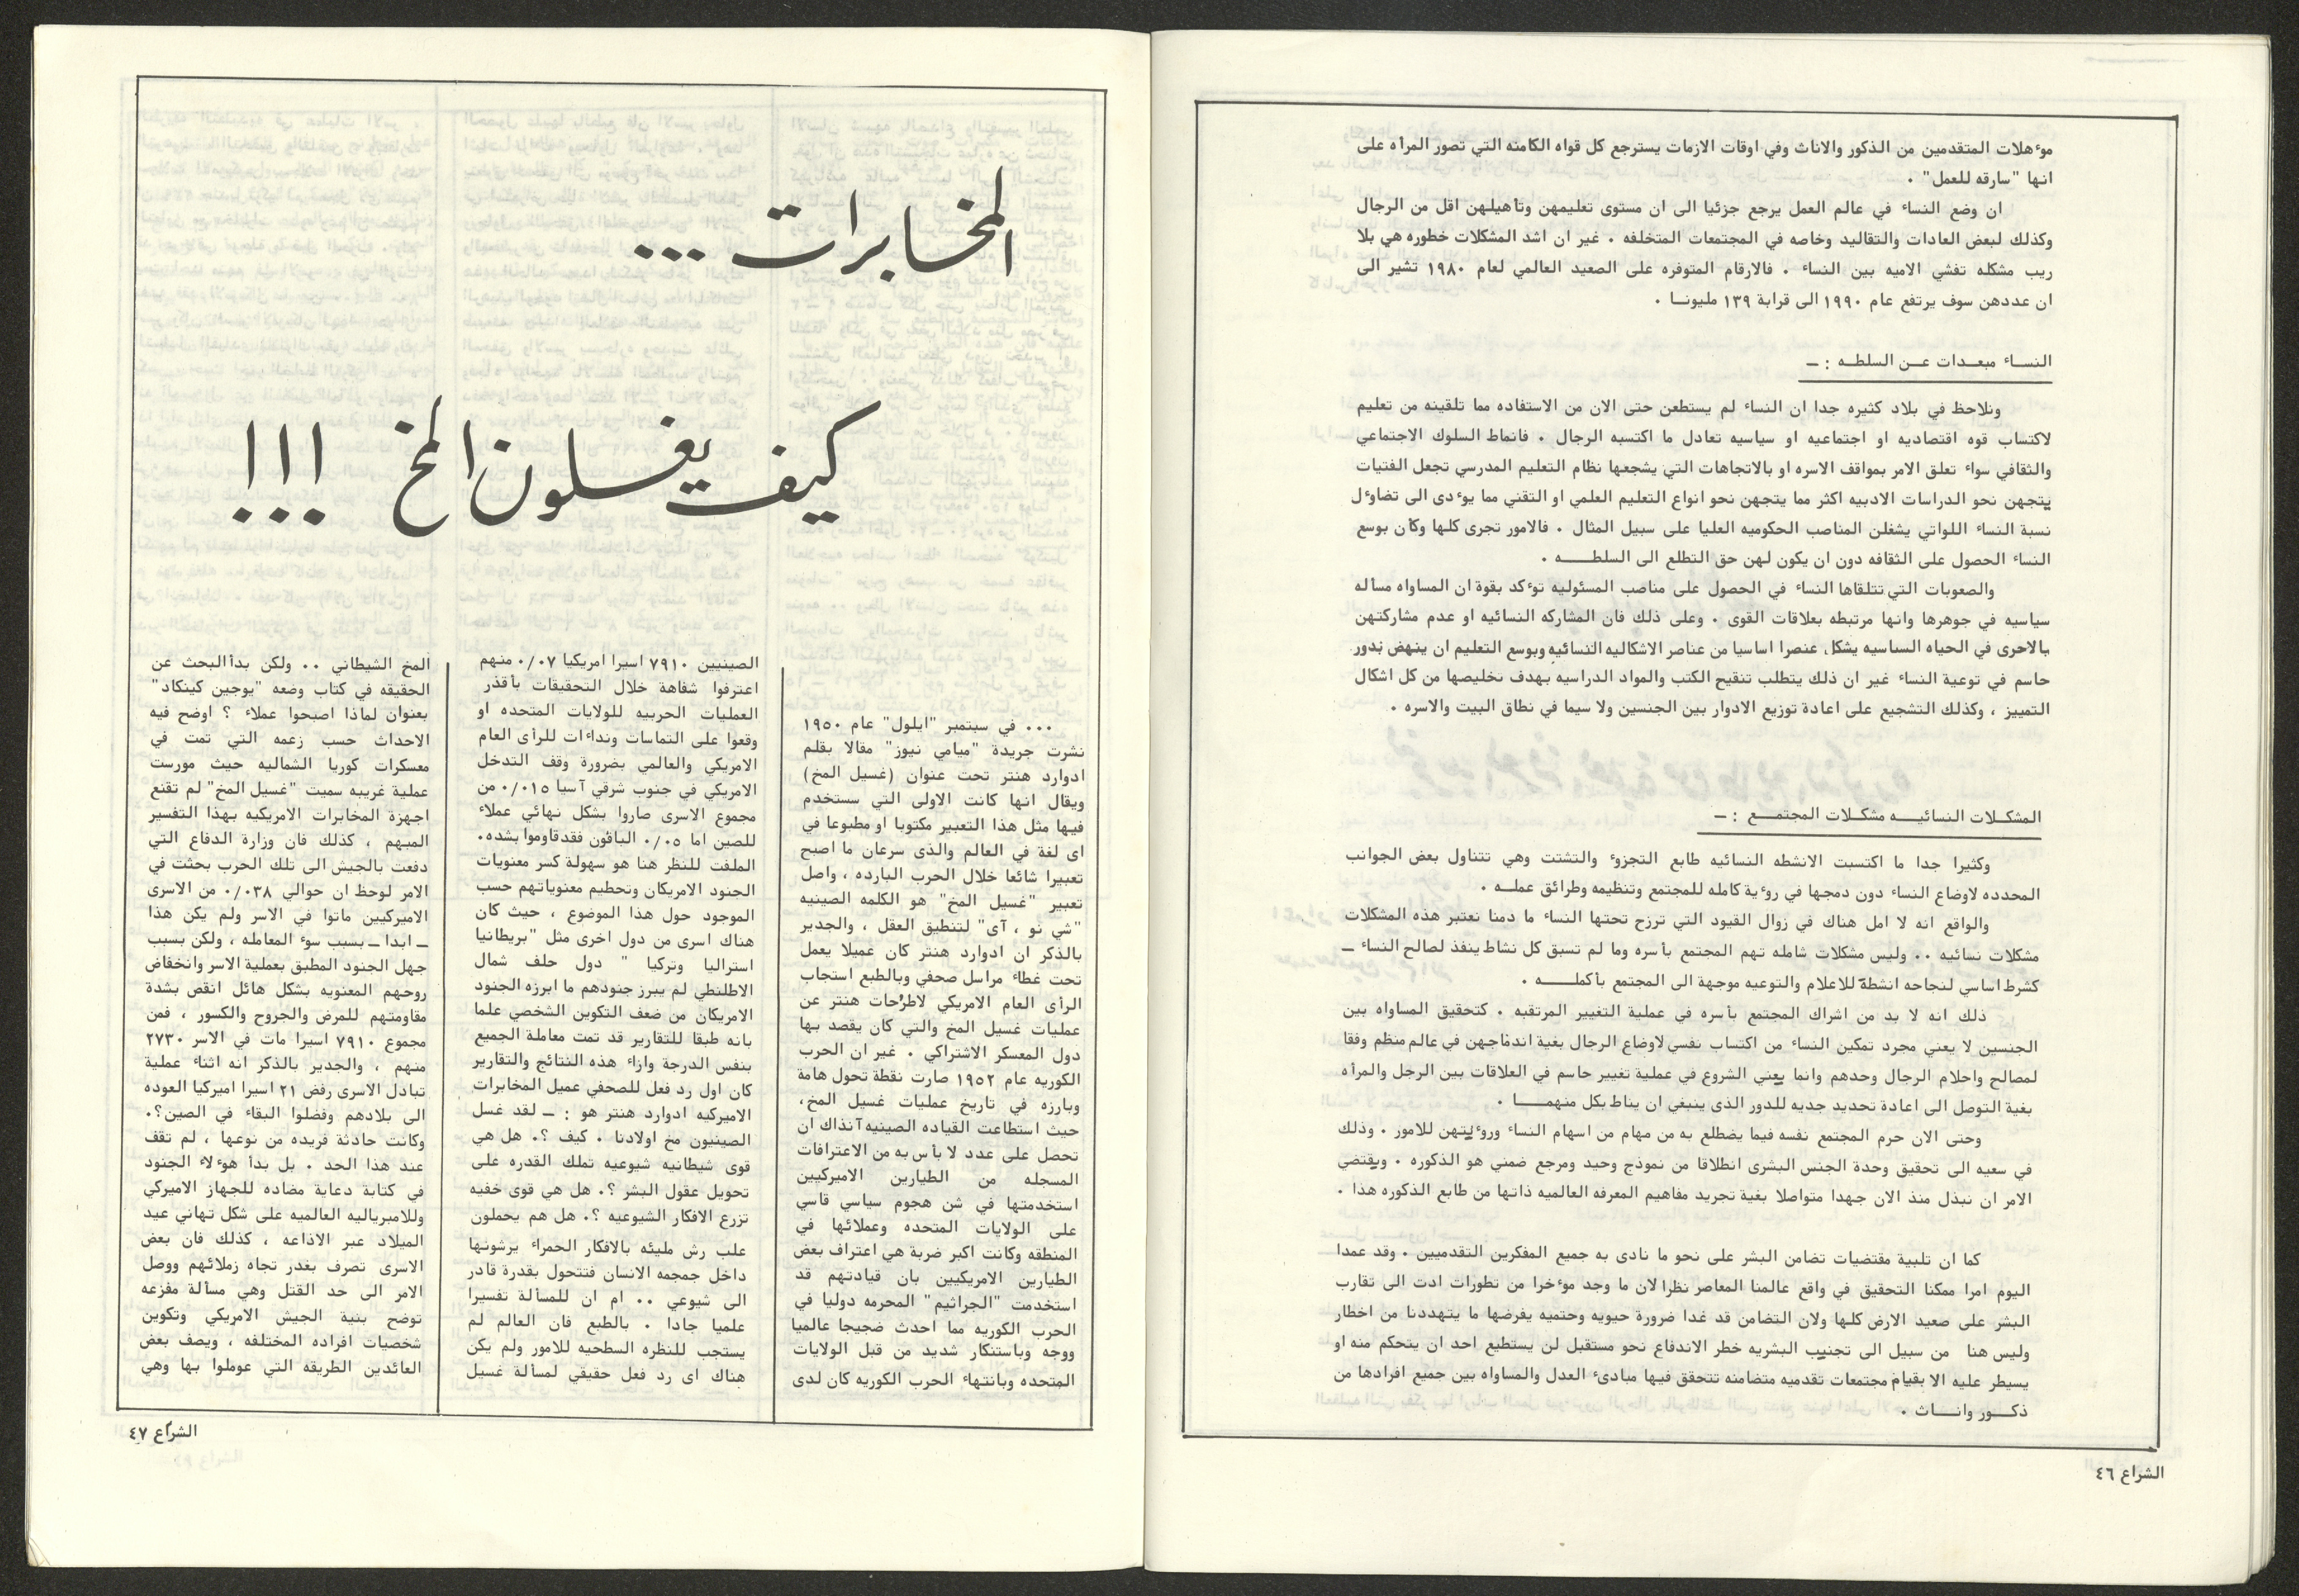 موءهلات المتقدمين من الذكور والاناث وفي اوقات الازمات يسترجع كل قواه الكامنه التي تصور المرأه على
انها "سارقه للعمل" .
ان وضع النساء في عالم العمل يرجع جزئيا الى ان مستوى تعليمهن وتأهيلهن اقل من الرجال
وكذلك لبعض العادات والتقاليد وخاصه في المجتمعات المتخلفه . غير ان اشد المشكلات خطوره هي بلا
ريب مشكله تفشي الاميه بين النساء . فالارقام المتوفره على الصعيد العالمي لعام ١٩٨٠ تشير الى
ان عددهن سوف يرتفع عام ١٩٩٠ الى قرابة ١٣٩ مليونـا .
النسـاء مبعـدات عـن السلطـه : ــ
ونلاحظ في بلاد كثيره جدا ان النساء لم يستطعن حتى الان من الاستفاده مما تلقينه من تعليم
لاكتساب قوه اقتصاديه او اجتماعيه او سياسيه تعادل ما اكتسبه الرجال . فانماط السلوك الاجتماعي
والثقافي سواء تعلق الامر بمواقف الاسره او بالاتجاهات التي يشجعها نظام التعليم المدرسي تجعل الفتيات
يتجهن نحو الدراسات الادبيه اكثر مما يتجهن نحو انواع التعليم العلمي او التقني مما يوءدى الى تضاوءل
نسبة النساء اللواتي يشغلن المناصب الحكوميه العليا على سبيل المثال . فالامور تجرى كلها وكأن بوسع
النساء الحصول على الثقافه دون ان يكون لهن حق التطلع الى السلطــــه .
والصعوبات التي تتلقاها النساء في الحصول على مناصب المسئوليه توءكد بقوة ان المساواه مسأله
سياسيه في جوهرها وانها مرتبطه بعلاقات القوى . وعلى ذلك فان المشاركه النسائيه او عدم مشاركتهن
بالاحرى في الحياه السياسيه يشكل عنصرا اساسيا من عناصر الاشكاليه النسائيه وبوسع التعليم ان ينهض بدور
حاسم في توعية النساء غير ان ذلك يتطلب تنقيح الكتب والمواد الدراسيه بهدف تخليصها من كل اشكال
التمييز ، وكذلك التشجيع على اعادة توزيع الادوار بين الجنسين ولا سيما في نطاق البيت والاسره .
المشكـلات النسائيــه مشكـلات المجتمــع : ــ
وكثيرا جدا ما اكتسبت الانشطه النسائيه طابع التجزوء والتشتت وهي تتناول بعض الجوانب
المحدده لاوضاع النساء دون دمجها في روءية كامله للمجتمع وتنظيمه وطرائق عملـه .
والواقع انه لا امل هناك في زوال القيود التي ترزح تحتها النساء ما دمنا نعتبر هذه المشكلات
مشكلات نسائيه .. وليس مشكلات شامله تهم المجتمع بأسره وما لم تسبق كل نشاط ينفذ لصالح النساء ــ
كشرط اساسي لنجاحه انشطة للاعلام والتوعيه موجهة الى المجتمع بأكملــــه .
ذلك انه لا بد من اشراك المجتمع بأسره في عملية التغيير المرتقبه . كتحقيق المساواه بين
الجنسين لا يعني مجرد تمكين النساء من اكتساب نفسي لاوضاع الرجال بغية اندماجهن في عالم منظم وفقا
لمصالح واحلام الرجال وحدهم وانما يعني الشروع في عملية تغيير حاسم في العلاقات بين الرجل والمرأه
بغية التوصل الى اعادة تحديد جديه للدور الذى ينبغي ان يناط بكل منهمــــا .
وحتى الان حرم المجتمع نفسه فيما يضطلع به من مهام من اسهام النساء وروءيتهن للامور . وذلك
في سعيه الى تحقيق وحدة الجنس البشرى انطلاقا من نموذج وحيد ومرجع ضمني هو الذكوره . ويقتضي
الامر ان نبذل منذ الان جهدا متواصلا بغية تجريد مفاهيم المعرفه العالميه ذاتها من طابع الذكوره هذا .
كما ان تلبية مقتضيات تضامن البشر على نحو ما نادى به جميع المفكرين التقدميين . وقد عمدا
اليوم امرا ممكنا التحقيق في واقع عالمنا المعاصر نظرا لان ما وجد موءخرا من تطورات ادت الى تقارب
البشر على صعيد الارض كلها ولان التضامن قد غدا ضرورة حيويه وحتميه يفرضها ما يتهددنا من اخطار
وليس هنا من سبيل الى تجنيب البشريه خطر الاندفاع نحو مستقبل لن يستطيع احد ان يتحكم منه او
يسيطر عليه الا بقيام مجتمعات تقدميه متضامنه تتحقق فيها مبادىء العدل والمساواه بين جميع افرادها من
ذكــور وانـــاث .
الشراع ٤٦
المخابرات ...
كيف يغسلون المخ !!!
... في سبتمبر "ايلول" عام ١٩٥٠
نشرت جريدة "ميامي نيوز" مقالا بقلم
ادوارد هنتر تحت عنوان (غسيل المخ)
ويقال انها كانت الاولى التي ستستخدم
فيها مثل هذا التعبير مكتوبا او مطبوعا في
اى لغة في العالم والذى سرعان ما اصبح
تعبيرا شائعا خلال الحرب البارده ، واصل
تعبير "غسيل المخ" هو الكلمه الصينيه
"شي نو ، آى" لتنطيق العقل ، والجدير
بالذكر ان ادوارد هنتر كان عميلا يعمل
تحت غطاء مراسل صحفي وبالطبع استجاب
الرأى العام الامريكي لاطرحات هنتر عن
عمليات غسيل المخ والتي كان يقصد بها
دول المعسكر الاشتراكي . غير ان الحرب
الكوريه عام ١٩٥٢ صارت نقطة تحول هامة
وبارزه في تاريخ عمليات غسيل المخ،
حيث استطاعت القياده الصينيه آنذاك ان
تحصل على عدد لا بأس به من الاعترافات
المسجله من الطيارين الاميركيين
استخدمتها في شن هجوم سياسي قاسي
على الولايات المتحده وعملائها في
المنطقه وكانت اكبر ضربة هي اعتراف بعض
الطيارين الامريكيين بان قيادتهم قد
استخدمت "الجراثيم" المحرمه دوليا في
الحرب الكوريه مما احدث ضجيجا عالميا
ووجه وباستنكار شديد من قبل الولايات
المتحده وبانتهاء الحرب الكوريه كان لدى
الصينيين ٧٩١٠ اسيرا امريكيا ٠/٠٧ منهم
اعترفوا شفاهة خلال التحقيقات بأقذر
العمليات الحربيه للولايات المتحده او
وقعوا على التماسات ونداءات للرأى العام
الامريكي والعالمي بضرورة وقف التدخل
الامريكي في جنوب شرقي آسيا ٠/٠١٥ من
مجموع الاسرى صاروا بشكل نهائي عملاء
للصين اما ٠/٠٥ الباقون فقد قاوموا بشده.
الملفت للنظر هنا هو سهولة كسر معنويات
الجنود الامريكان وتحطيم معنوياتهم حسب
الموجود حول هذا الموضوع ، حيث كان
هناك اسرى من دول اخرى مثل "بريطانيا
استراليا وتركيا " دول حلف شمال
الاطلنطي لم يبرز جنودهم ما ابرزه الجنود
الامريكان من ضعف التكوين الشخصي علما
بانه طبقا للتقارير قد تمت معاملة الجميع
بنفس الدرجة وازاء هذه النتائج والتقارير
كان اول رد فعل للصحفي عميل المخابرات
الاميركيه ادوارد هنتر هو : ــ لقد غسل
الصينيون مخ اولادنا . كيف ؟. هل هي
قوى شيطانيه شيوعيه تملك القدره على
تحويل عقول البشر ؟. هل هي قوى خفيه
تزرع الافكار الشيوعيه ؟. هل هم يحملون
علب رش مليئه بالافكار الحمراء يرشونها
داخل جمجمه الانسان فتتحول بقدرة قادر
الى شيوعي .. ام ان للمسألة تفسيرا
علميا جادا . بالطبع فان العالم لم
يستجب للنظره السطحيه للامور ولم يكن
هناك اى رد فعل حقيقي لمسألة غسيل
المخ الشيطاني .. ولكن بدأ البحث عن
الحقيقه في كتاب وضعه "يوجين كينكاد"
بعنوان لماذا اصبحوا عملاء ؟ اوضح فيه
الاحداث حسب زعمه التي تمت في
معسكرات كوريا الشماليه حيث مورست
عملية غريبه سميت "غسيل المخ" لم تقنع
اجهزة المخابرات الامريكيه بهذا التفسير
المبهم ، كذلك فان وزارة الدفاع التي
دفعت بالجيش الى تلك الحرب بحثت في
الامر لوحظ ان حوالي ٠/٠٣٨ من الاسرى
الاميركيين ماتوا في الاسر ولم يكن هذا
ــ ابدا ــ بسبب سوء المعامله ، ولكن بسبب
جهل الجنود المطبق بعملية الاسر وانخفاض
روحهم المعنويه بشكل هائل انقص بشدة
مقاومتهم للمرض والجروح والكسور ، فمن
مجموع ٧٩١٠ اسيرا مات في الاسر ٢٧٣٠
منهم ، والجدير بالذكر انه اثناء عملية
تبادل الاسرى رفض ٢١ اسيرا اميركيا العوده
الى بلادهم وفضلوا البقاء في الصين؟.
وكانت حادثة فريده من نوعها ، لم تقف
عند هذا الحد . بل بدأ هوءلاء الجنود
في كتابة دعاية مضاده للجهاز الاميركي
وللامبرياليه العالميه على شكل تهاني عيد
الميلاد عبر الاذاعه ، كذلك فان بعض
الاسرى تصرف بغدر تجاه زملائهم ووصل
الامر الى حد القتل وهي مسألة مفزعه
توضح بنية الجيش الامريكي وتكوين
شخصيات افراده المختلفه ، ويصف بعض
العائدين الطريقه التي عوملوا بها وهي
الشراع ٤٧